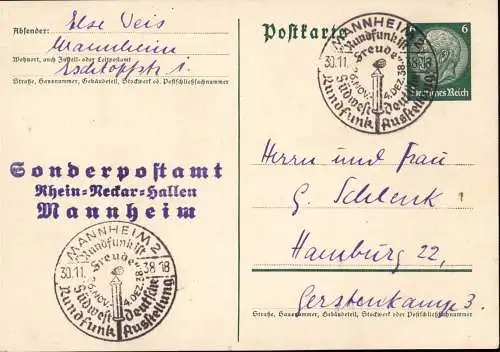 Absender: Else Veis
Mannheim
Wohnort, auch Zustell- oder Leitpostamt
Straße, Hausnummer, Gebäudeteil, Stockwerk od. Postschließfachnummer
Sonderpostamt
Rhein-Neckar-Hallen
Mannheim
MANNHEIM 2
"Rundfunk ist
Freude"
30.11. 38-18
26. NOV.-
4. DEZ. 38
Südwestdeutsche
Rundfunk Ausstellung
Postkarte
6
Deutsches Reich
MANNHEIM 2
"Rundfunk ist
Freude"
30.11. 38-18
26. NOV.-
4. DEZ. 38
Südwestdeutsche
Rundfunk Ausstellung
Herrn und Frau
G. Schlenk
Hamburg 22,
Gerstenkamp 3.
Straße, Hausnummer, Gebäudeteil, Stockwerk oder Postschließfachnummer